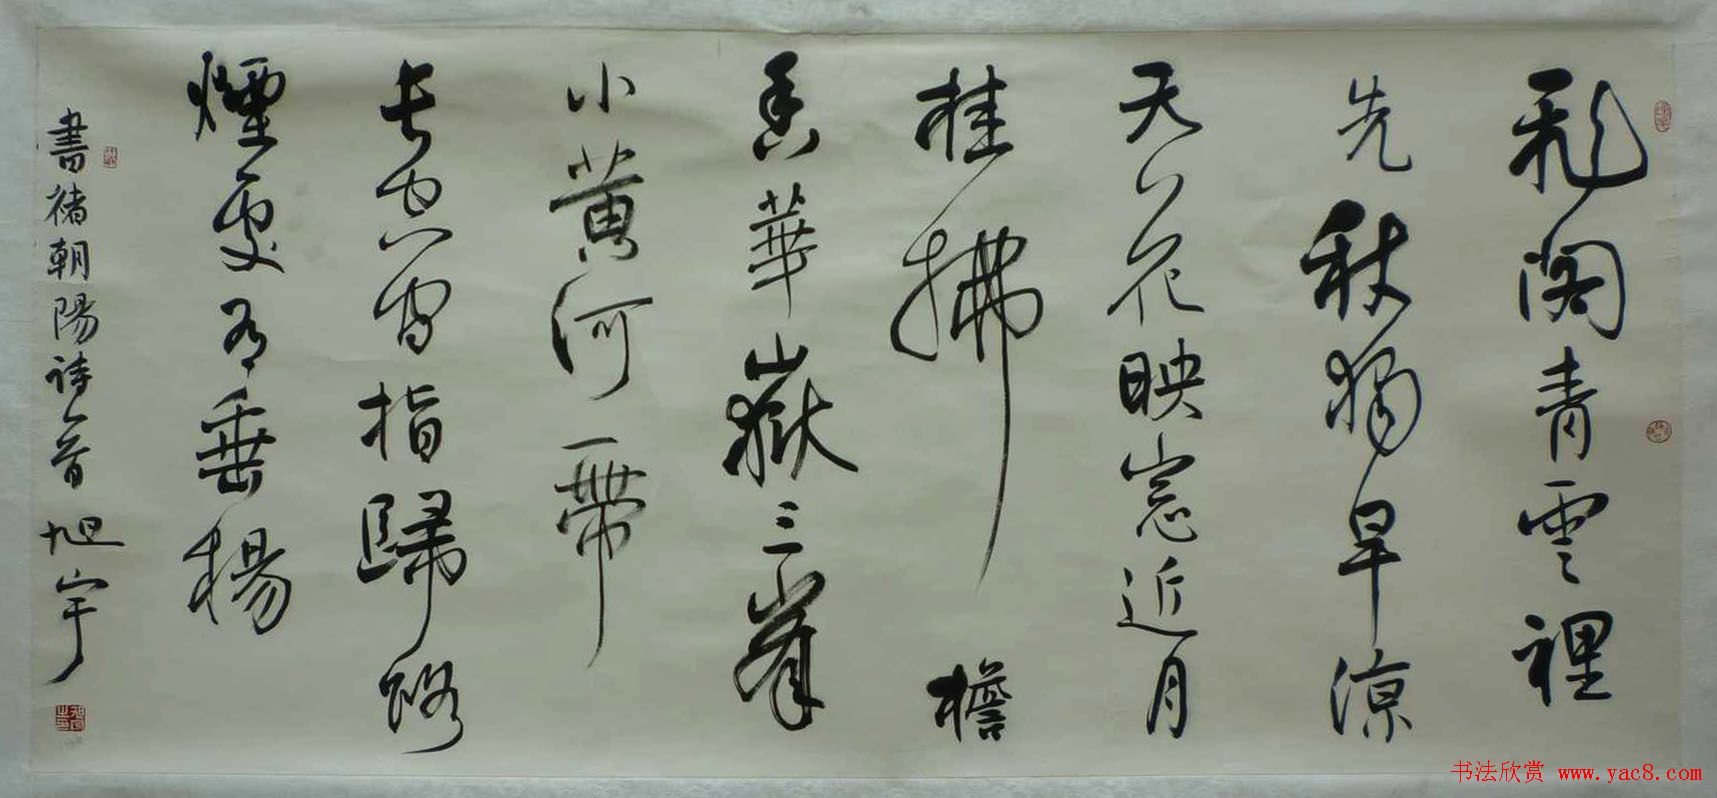 飛閣青雲裡
先秋獨早涼
天花映窓近月
桂拂檐
香華嶽三峯
小黄河一帶
長空間指歸路
煙處有垂楊
書褚朝陽詩一首 旭宇
书法欣赏 www.yac8.com